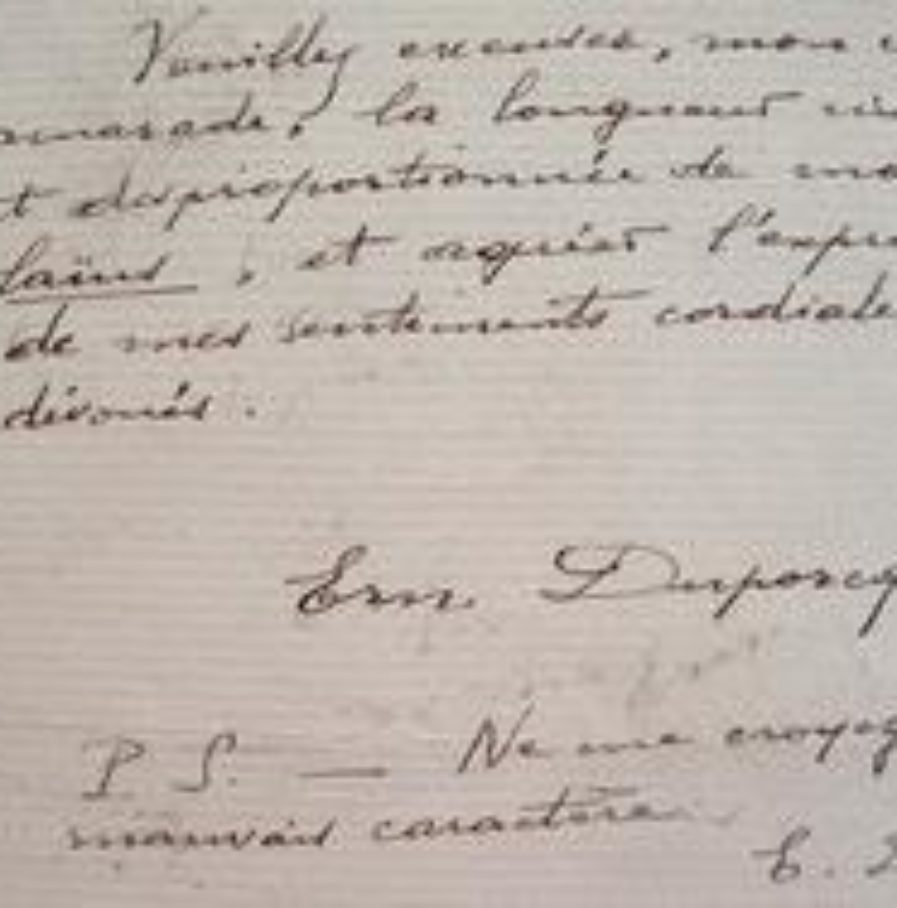 Veuillez excuser, mon
camarade, la longueur
et disproportionnée de
laïus, et agréer l'expr
de mes sentiments cordiale
dévoués.
Ern. Duporcq
P. S. — Ne me croyez
mauvais caractère.
E.